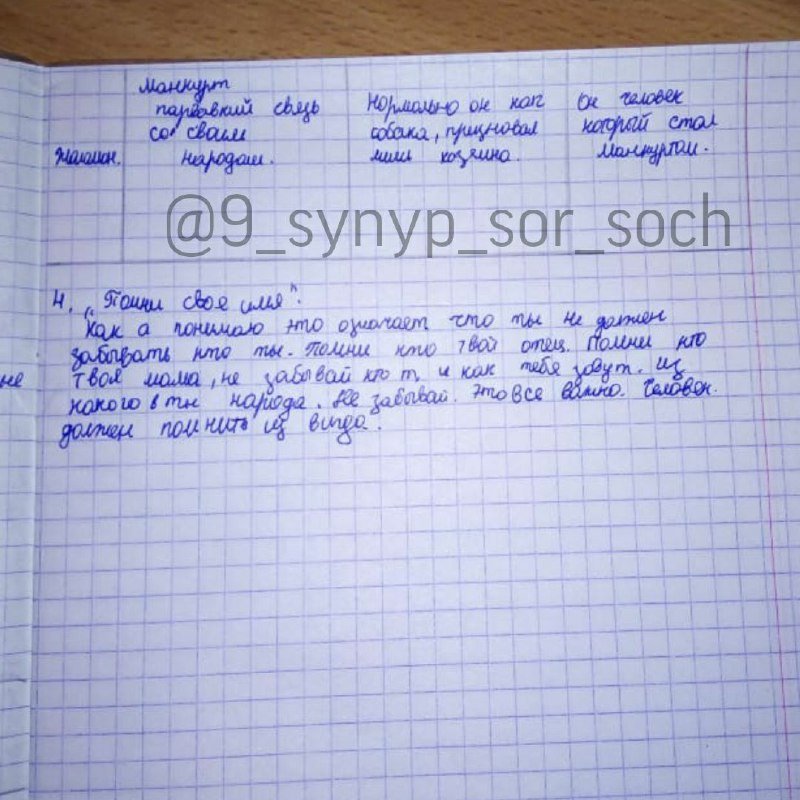 Манкурт
парвавкий свезь
со сваим
народам.
Жаламан.
Нормально он как
собака, признавал
лишь хозяина.
Он человек
который стал
манкуртам.
@9_synyp_sor_soch
4. „Помни свое имя".
Как а понимаю это означает что ты не должен
забывать кто ты. Помни кто твой отец. Помни кто
твоя мама, не забывай кто т и как тебя зовут. из
какого в ты народа. Не забывай. Это все важно. Человек.
должен помнить из вигда.
не